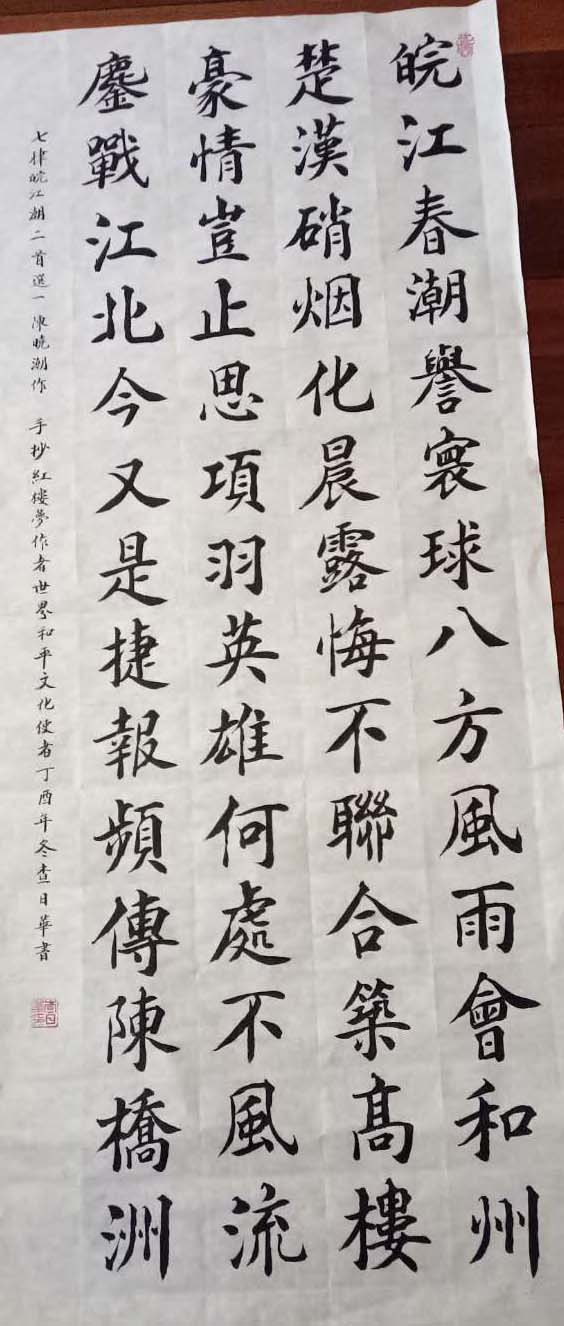 皖江春潮譽寰球八方風雨會和州
楚漢硝烟化晨露悔不聯合築髙樓
豪情豈止思項羽英雄何處不風流
鏖戰江北今又是捷報頻傳陳橋洲
七律皖江潮二首選一陳曉潮作 手抄紅楼夢作者世界和平文化使者丁酉年冬查日華書